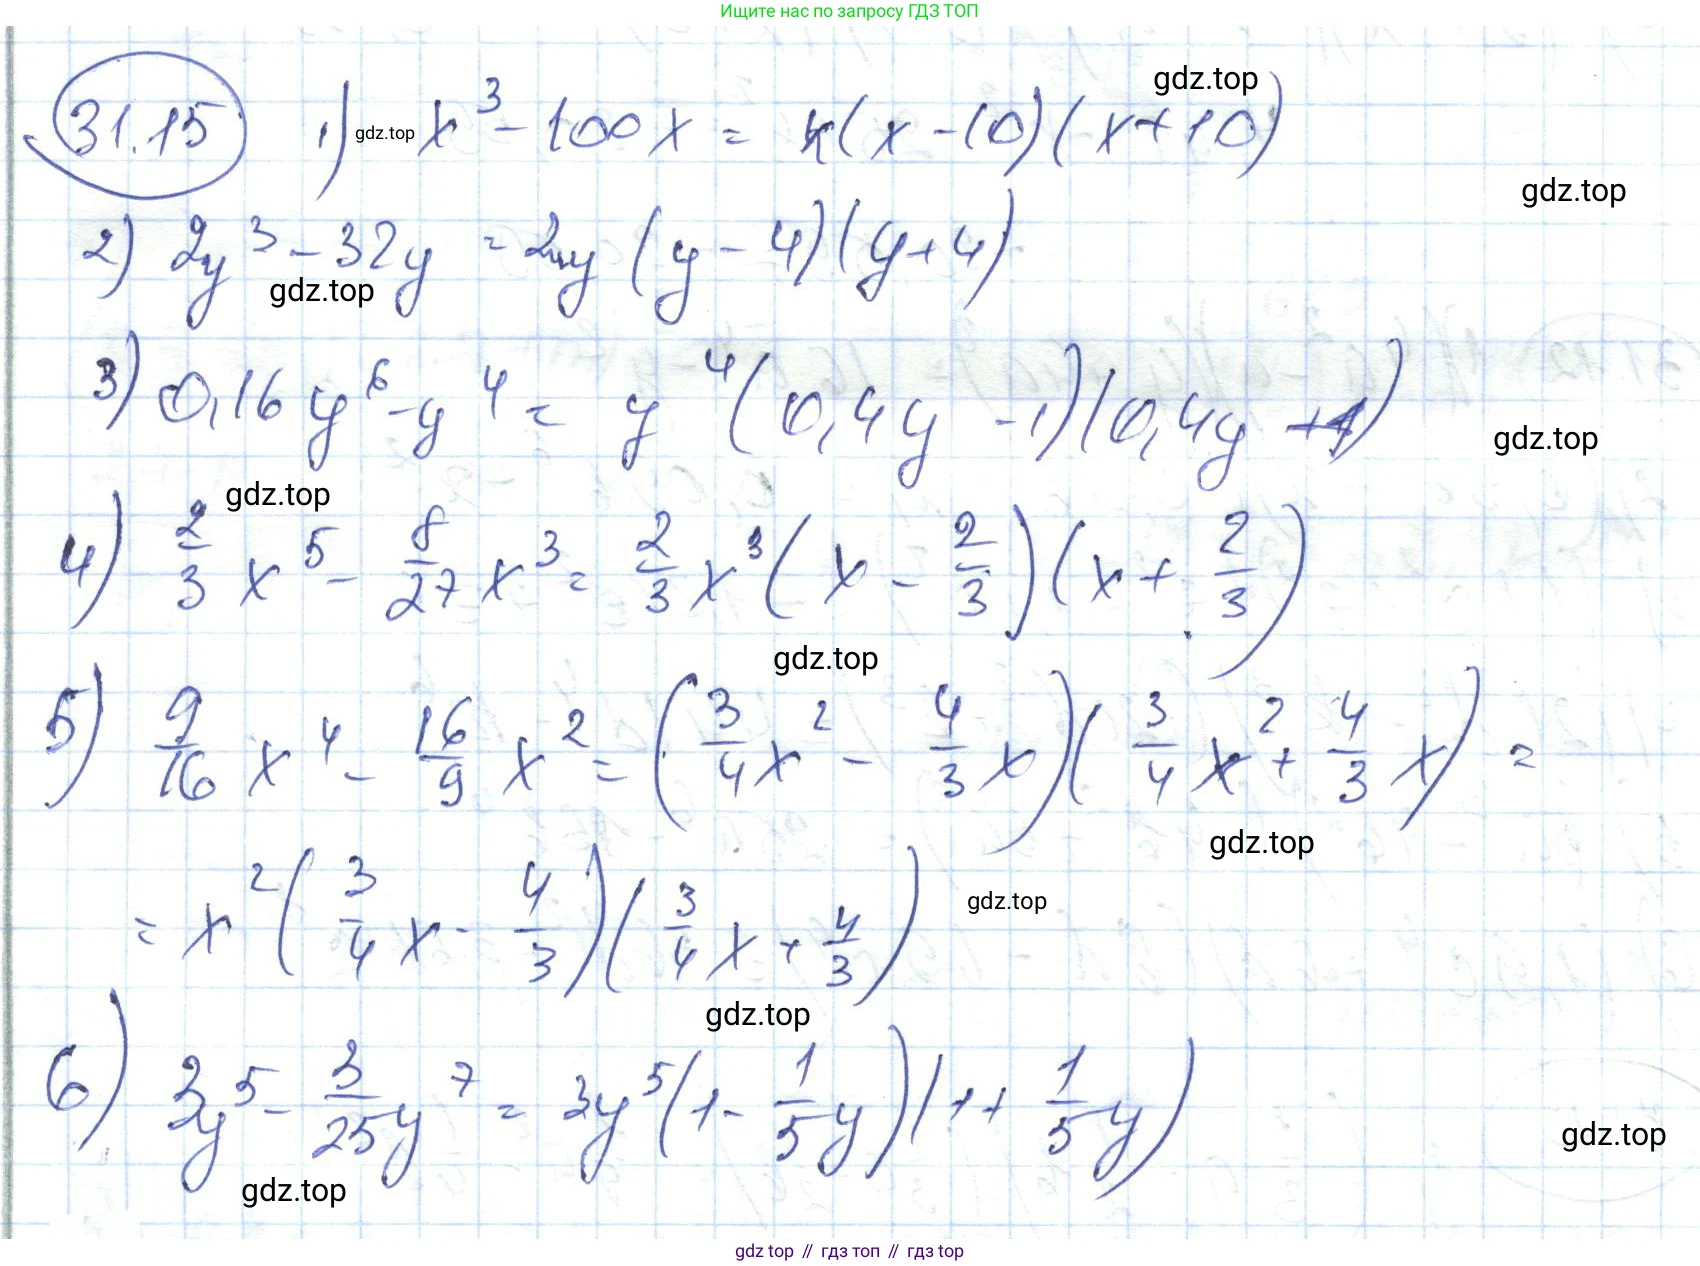 Ищите нас по запросу ГДЗ ТОП
gdz.top
31.15 1) gdz.top x³ - 100x = x(x - 10)(x + 10)
gdz.top
2) 2y³ - 32y = 2y (y - 4)(y + 4)
gdz.top
3) 0,16y⁶ - y⁴ = y⁴(0,4y - 1)(0,4y + 1)
gdz.top
gdz.top
4) 2/3 x⁵ - 8/27 x³ = 2/3 x³(x - 2/3)(x + 2/3)
gdz.top
5) 9/16 x⁴ - 16/9 x² = (3/4 x² - 4/3 x)(3/4 x² + 4/3 x) =
gdz.top
= x²(3/4 x - 4/3)(3/4 x + 4/3)
gdz.top
gdz.top
6) 3y⁵ - 3/25 y⁷ = 3y⁵(1 - 1/5 y)(1 + 1/5 y)
gdz.top
gdz.top
gdz top // гдз топ // гдз top